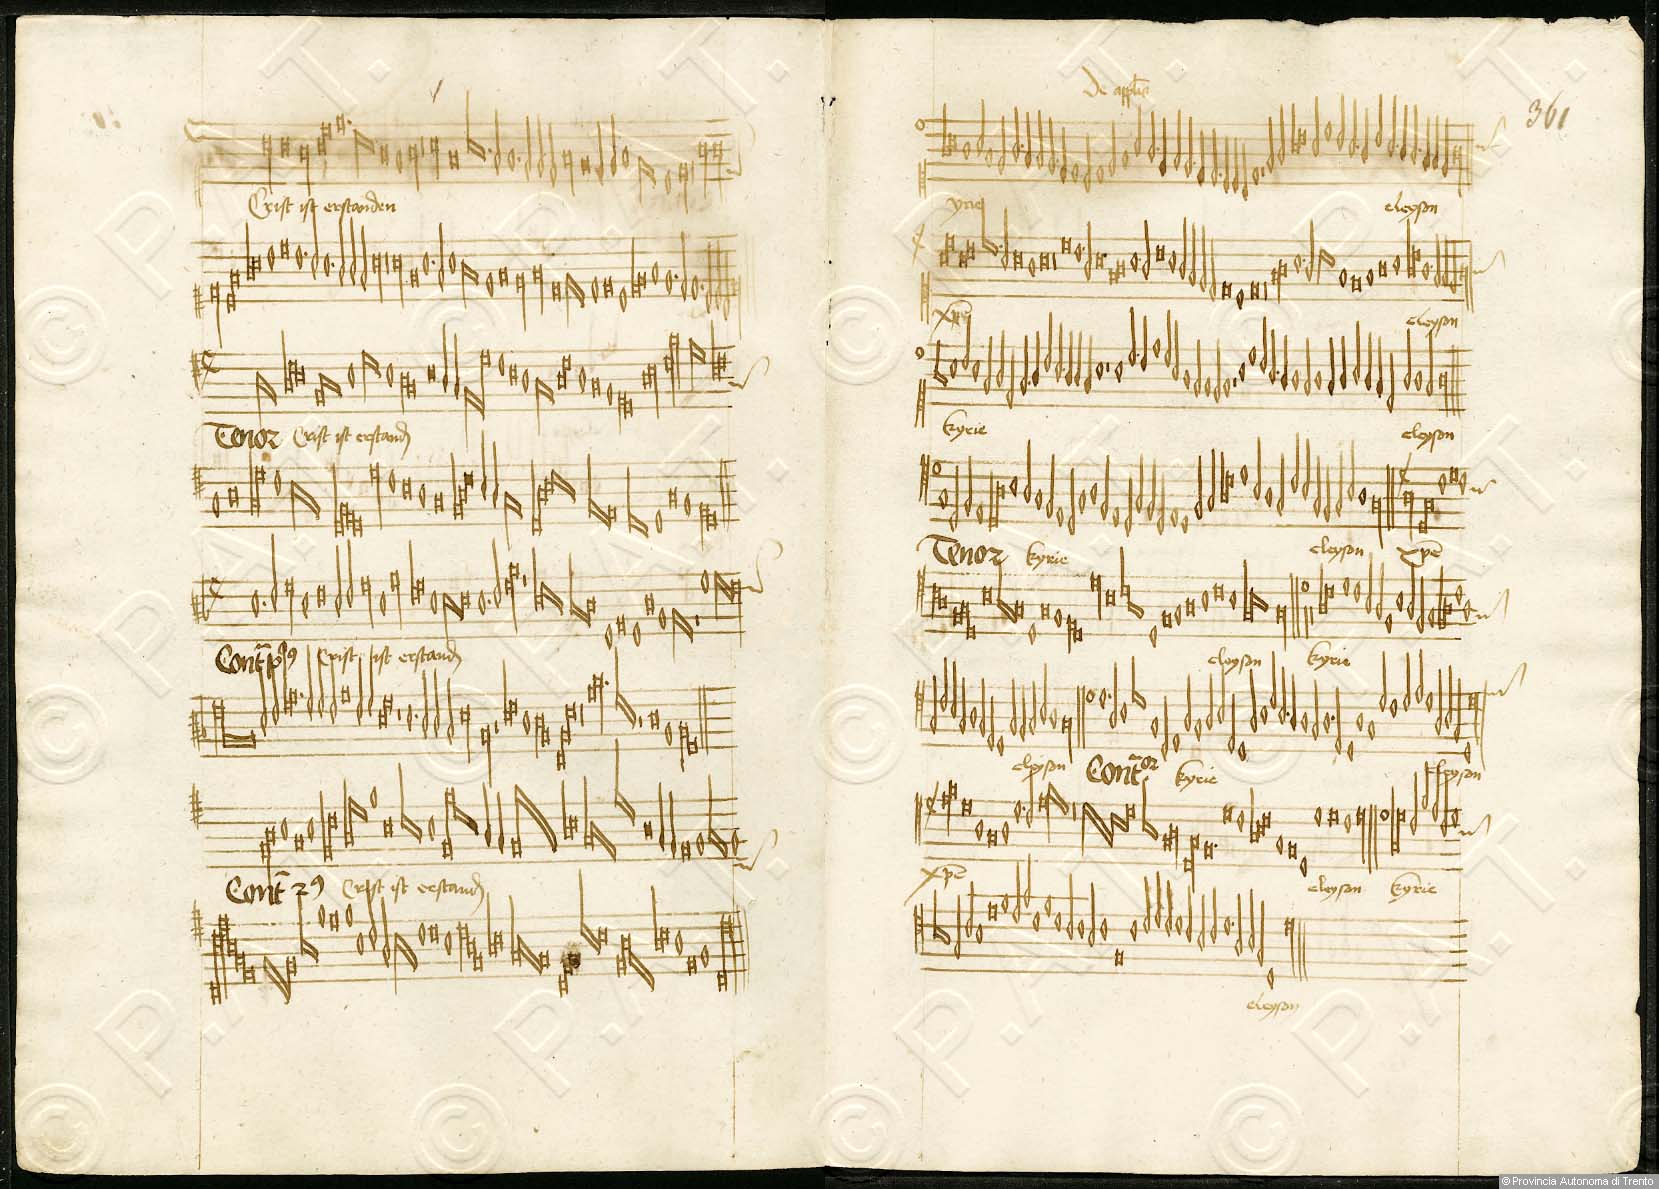 Crist ist erstanden
Tenor Crist ist erstand
Cont̃ p9 Crist ist erstand
Cont̃ 29 Crist ist erstand
De aplis
361
yrie eleyson
xpē eleyson
kyrie eleyson
Tenor kyrie eleyson xpē
eleyson kyrie
eleyson Cont̃or kyrie eleyson
xpē eleyson kyrie
eleyson
© Provincia Autonoma di Trento